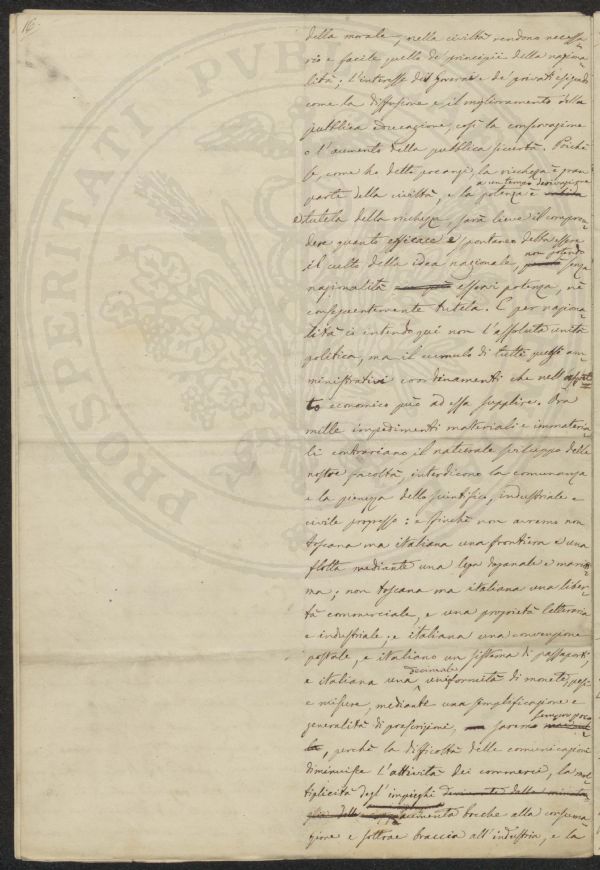 16.
PROSPERITATI PVBLICAE
della morale, nella civiltà rendono necessa-
rio e facile quello de' principii della naziona-
lità; l'interesse del governo e de' privati esigendo
come la diffusione e il miglioramento della
pubblica educazione, così la conservazione
o l'aumento della pubblica ricchezza. Poichè
se, come ho detto poc'anzi, la ricchezza è gran
parte della civiltà, e la potenza è a un tempo derivazione
e tutela della ricchezza, sarà lieve il compren-
dere quanto efficace e spontaneo debba essere
il culto della idea nazionale, non potendo senza
nazionalità esservi potenza, nè
conseguentemente tutela. E per naziona-
lità io intendo qui non l'assoluta unità
politica, ma il cumulo di tutti quegli am-
ministrativi coordinamenti che nell'aspet-
to economico può ad essa supplire. Ora
mille impedimenti materiali e immateria-
li contrariano il naturale sviluppo delle
nostre facoltà, interdicono la comunanza
e la pienezza dello scientifico, industriale e
civile progresso: e finchè non avremo non
toscana ma italiana una frontiera e una
flotta mediante una lega doganale e maritti-
ma; non toscana ma italiana una liber-
tà commerciale, e una proprietà letteraria
e industriale; e italiana una convenzione
postale, e italiano un sistema di passaporti,
e italiana una decimale uniformità di monete, pesi
e misure, mediante una semplificazione e
generalità di prescrizioni, saremo sempre poco
perchè la difficoltà delle comunicazioni
diminuisce l'attività dei commerci, la mol-
tiplicità degl'impieghi
aumenta bocche alla consuma-
zione e sottrae braccia all'industria, e la